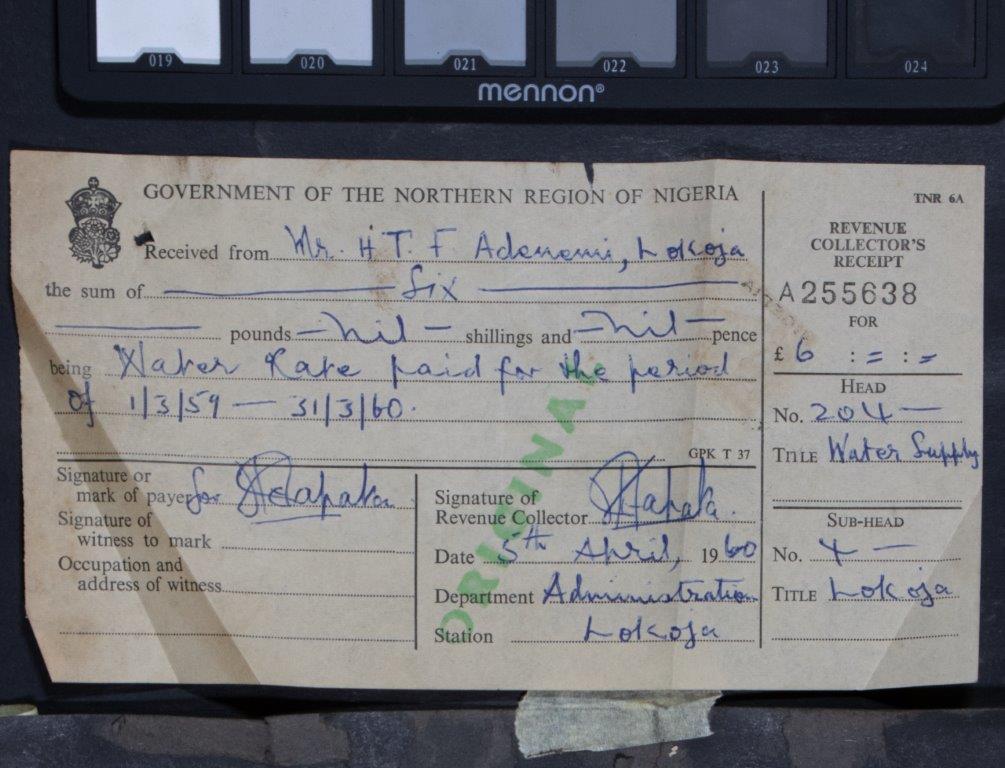 019 020 021 022 023 024
mennon®
GOVERNMENT OF THE NORTHERN REGION OF NIGERIA
Received from Mr. H T. F. Adenemi, Lokoja
the sum of Six
pounds - nil - shillings and - nil - pence
being Water Rate paid for the period
of 1/3/59 — 31/3/60.
GPK T 37
ORIGINAL
Signature or
mark of payer for
Signature of
witness to mark
Occupation and
address of witness
Signature of
Revenue Collector
Date 5th April, 1960
Department Administration
Station Lokoja
TNR 6A
REVENUE
COLLECTOR'S
RECEIPT
A255638
FOR
£ 6 : = : =
HEAD
No. 204 —
TITLE Water Supply
SUB-HEAD
No. 4 —
TITLE Lokoja